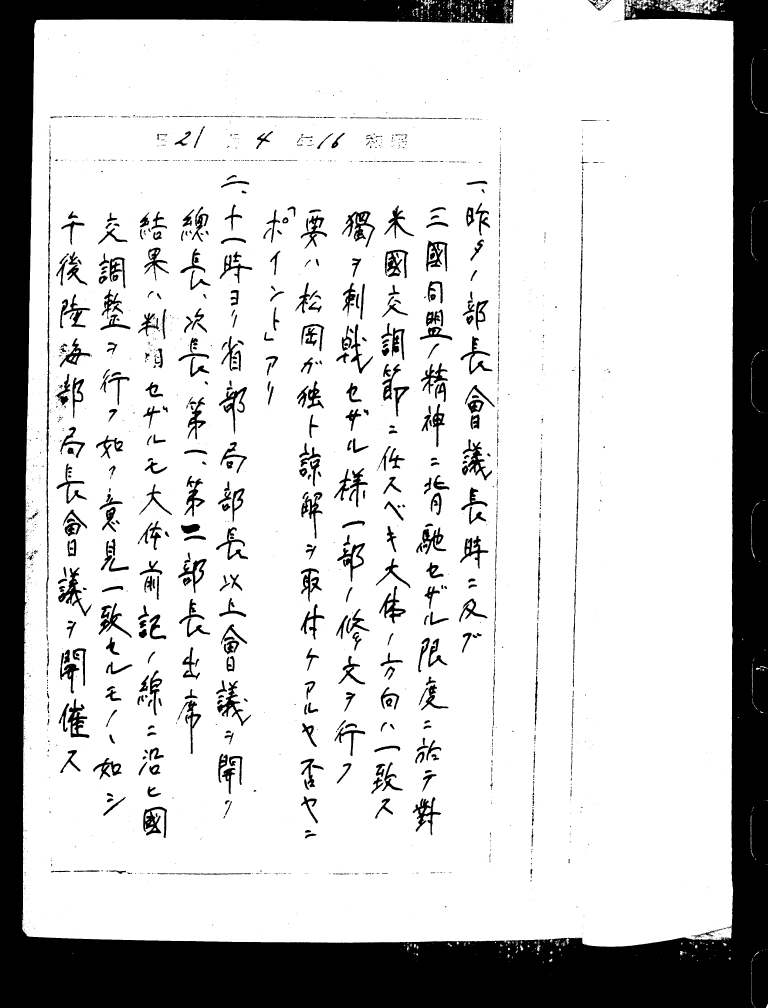 昭和16年4月21日
一、昨夕ノ部長會議長時ニ及ブ
三國同盟ノ精神ニ背馳セザル限度ニ於テ對
米國交調節ニ任スベキ大体ノ方向ハ一致ス
獨ヲ刺戟セザル様一部ノ修文ヲ行フ
要ハ松岡ガ独ト諒解ヲ取付ケアルヤ否ヤニ
「ポイント」アリ
二、十一時ヨリ省部局部長以上會議ヲ開ク
總長、次長、第一、第二部長出席
結果ハ判明セザルモ大体前記ノ線ニ沿ヒ國
交調整ヲ行フ如ク意見一致セルモノヽ如シ
午後陸海部局長會議ヲ開催ス